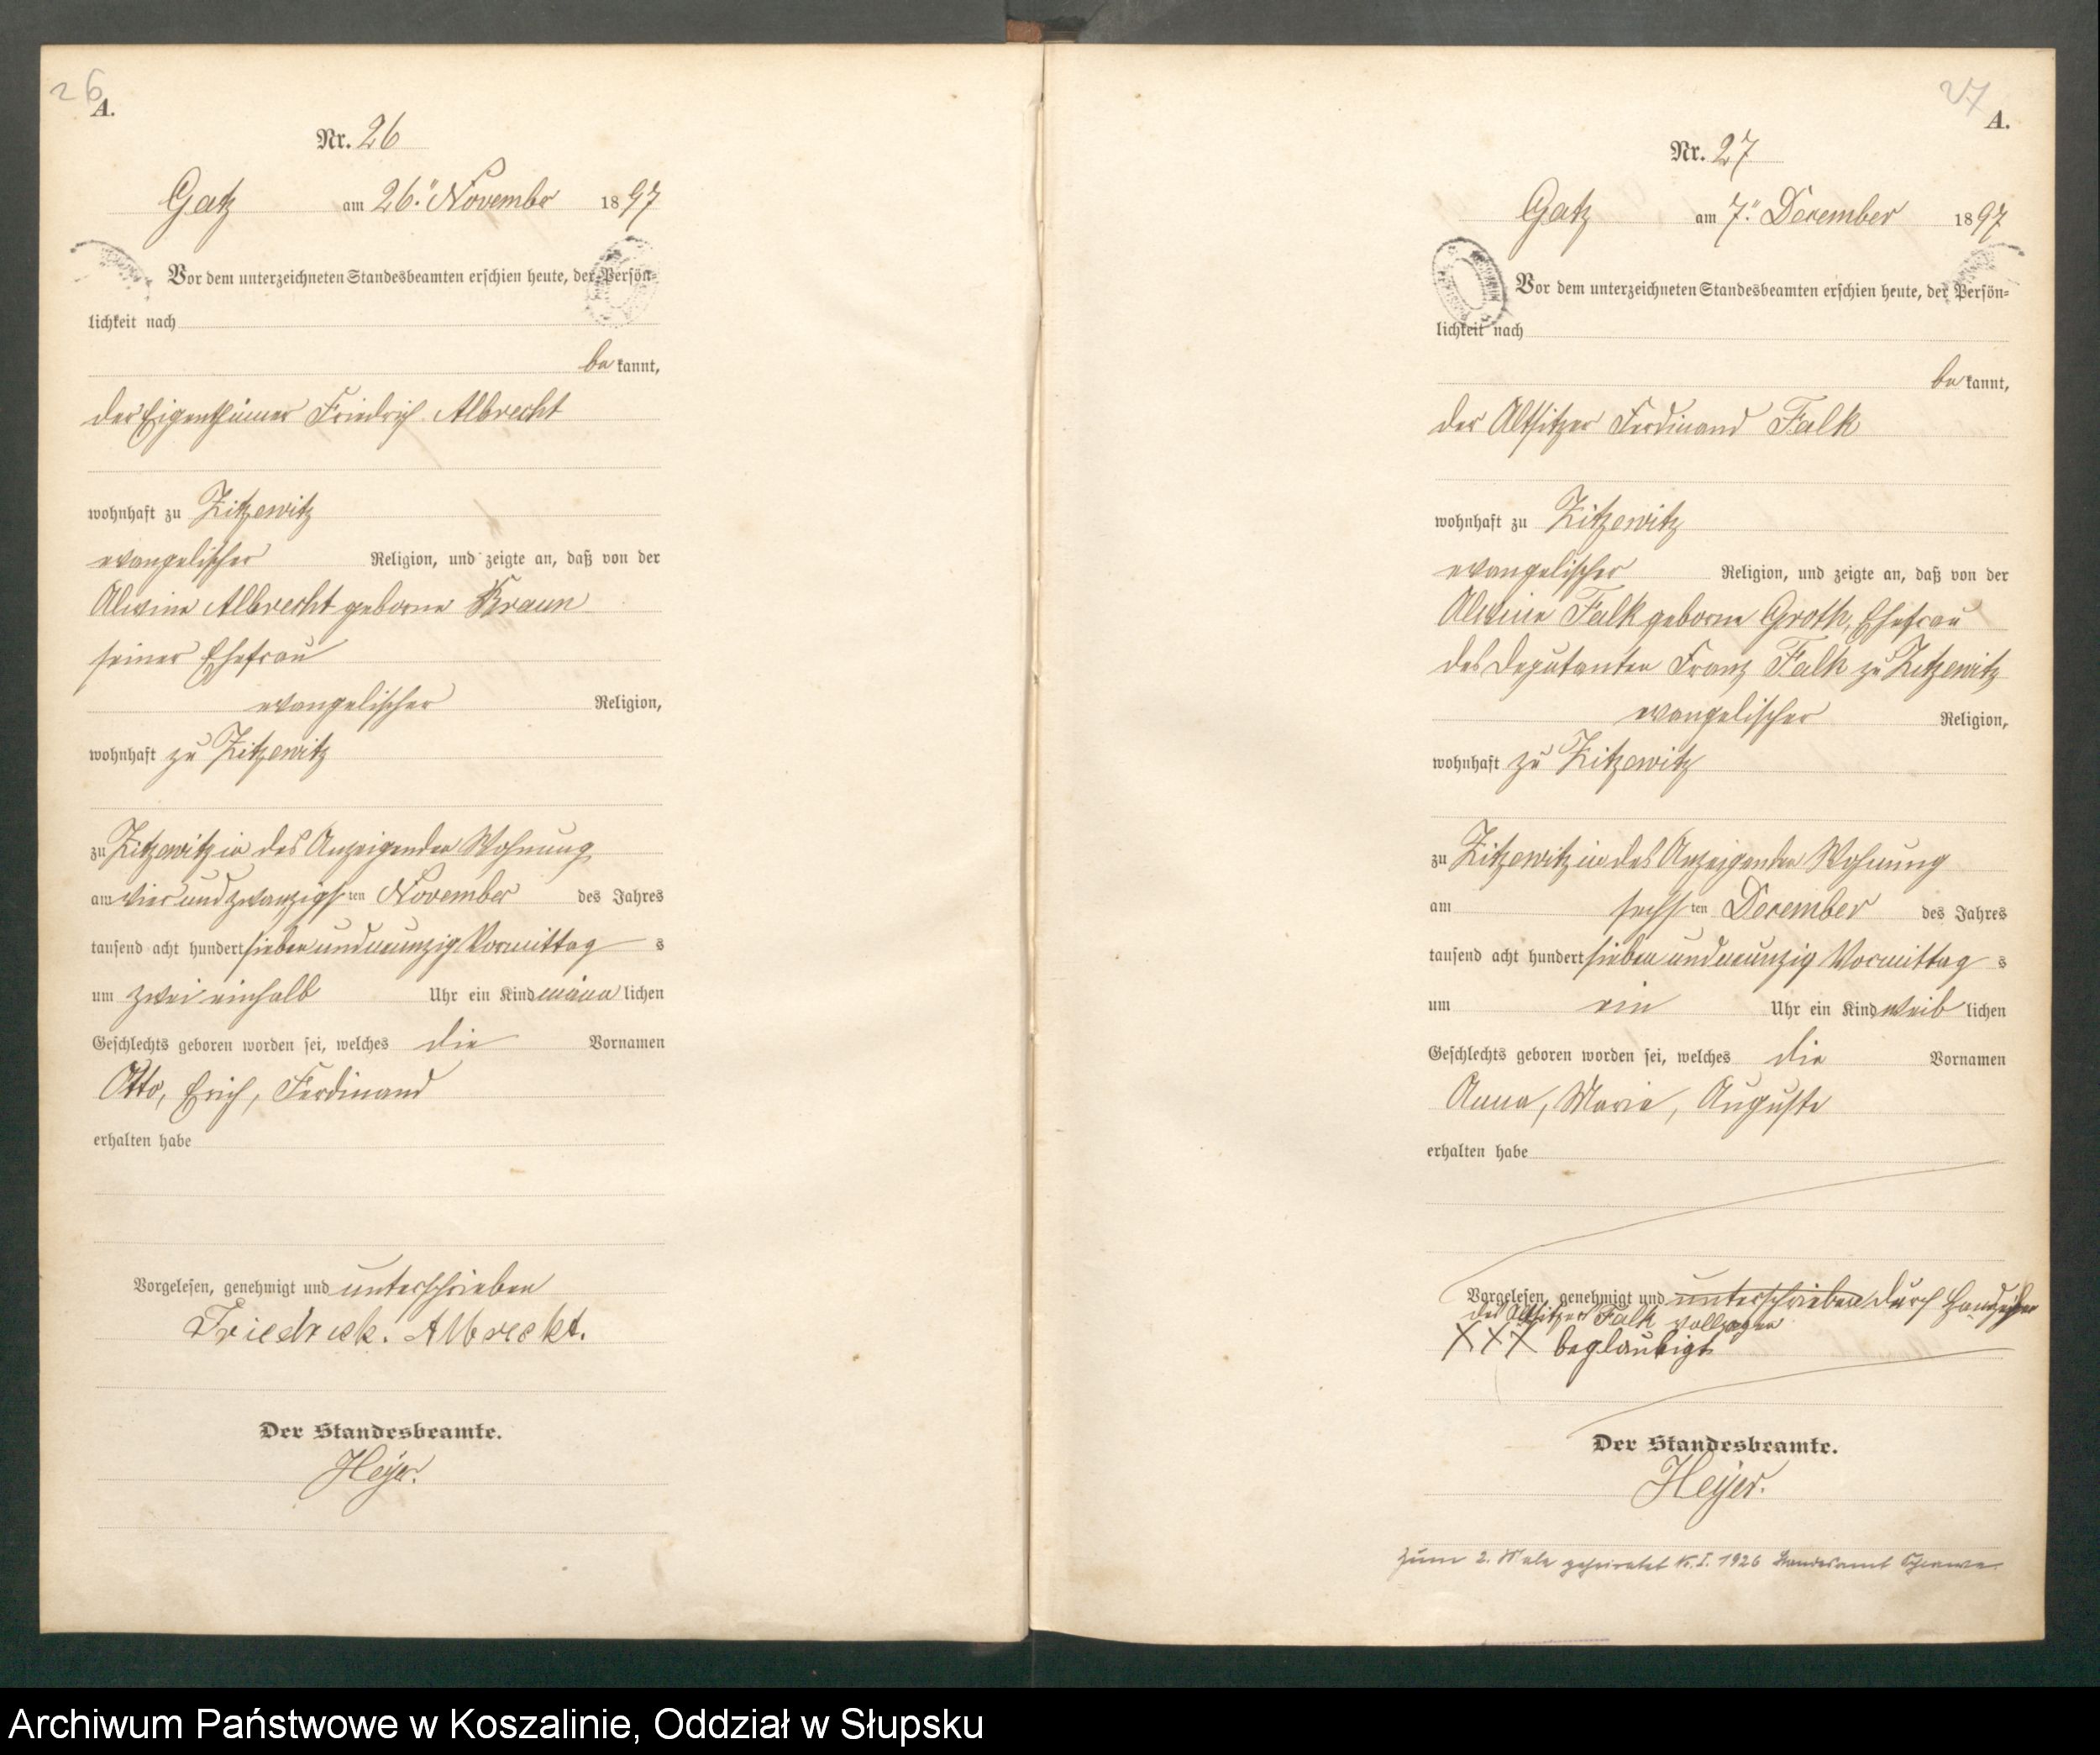 26
A.
Nr. 26
Gatz am 26.ten November 1897
Vor dem unterzeichneten Standesbeamten erschien heute, der Persön-
lichkeit nach
bekannt,
der Eigenthümer Friedrich Albrecht
wohnhaft zu Zitzewitz
evangelischer Religion, und zeigte an, daß von der
Alwine Albrecht geborne Kraun
seiner Ehefrau
evangelischer Religion,
wohnhaft zu Zitzewitz
zu Zitzewitz in des Anzeigenden Wohnung
am vier und zwanzigsten November des Jahres
tausend acht hundert sieben und neunzig Vormittags
um zwei einhalb Uhr ein Kind männlichen
Geschlechts geboren worden sei, welches die Vornamen
Otto, Erich, Ferdinand
erhalten habe
Vorgelesen, genehmigt und unterschrieben
Friedrick. Albreckt.
Der Standesbeamte.
Heyer.
27
A.
Nr. 27
Gatz am 7.ten December 1897
Vor dem unterzeichneten Standesbeamten erschien heute, der Persön-
lichkeit nach
bekannt,
der Altsitzer Ferdinand Falk
wohnhaft zu Zitzewitz
evangelischer Religion, und zeigte an, daß von der
Alwine Falk geborne Groth, Ehefrau
des Deputanten Franz Falk zu Zitzewitz
evangelischer Religion,
wohnhaft zu Zitzewitz
zu Zitzewitz in des Anzeigenden Wohnung
am sechsten December des Jahres
tausend acht hundert sieben und neunzig Vormittags
um ein Uhr ein Kind weiblichen
Geschlechts geboren worden sei, welches die Vornamen
Anna, Marie, Auguste
erhalten habe
Vorgelesen, genehmigt und unterschrieben durch Handzeichen
des Altsitzers Falk vollzogen
XXX beglaubigt
Der Standesbeamte.
Heyer.
zum 2. Male geheiratet 1926 Standesamt
Archiwum Państwowe w Koszalinie, Oddział w Słupsku